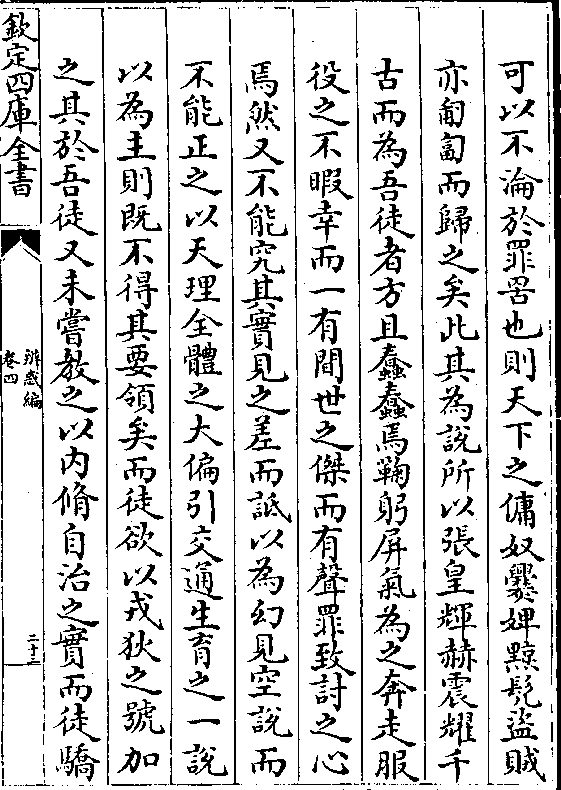 可以不淪於罪罟也則天下之傭奴爨婢黥髡盜賊
亦匍匐而歸之矣此其為說所以張皇輝赫震耀千
古而為吾徒者方且蠢蠢焉鞠躬屏氣為之奔走服
役之不暇幸而一有間世之傑而有聲罪致討之心
焉然又不能究其實見之差而詆以為幻見空說而
不能正之以天理全體之大偏引交通生育之一說
以為主則既不得其要領矣而徒欲以戎狄之號加
之其於吾徒又未嘗教之以內脩自治之實而徒驕
欽定四庫全書
辨惑編
卷四
二十三